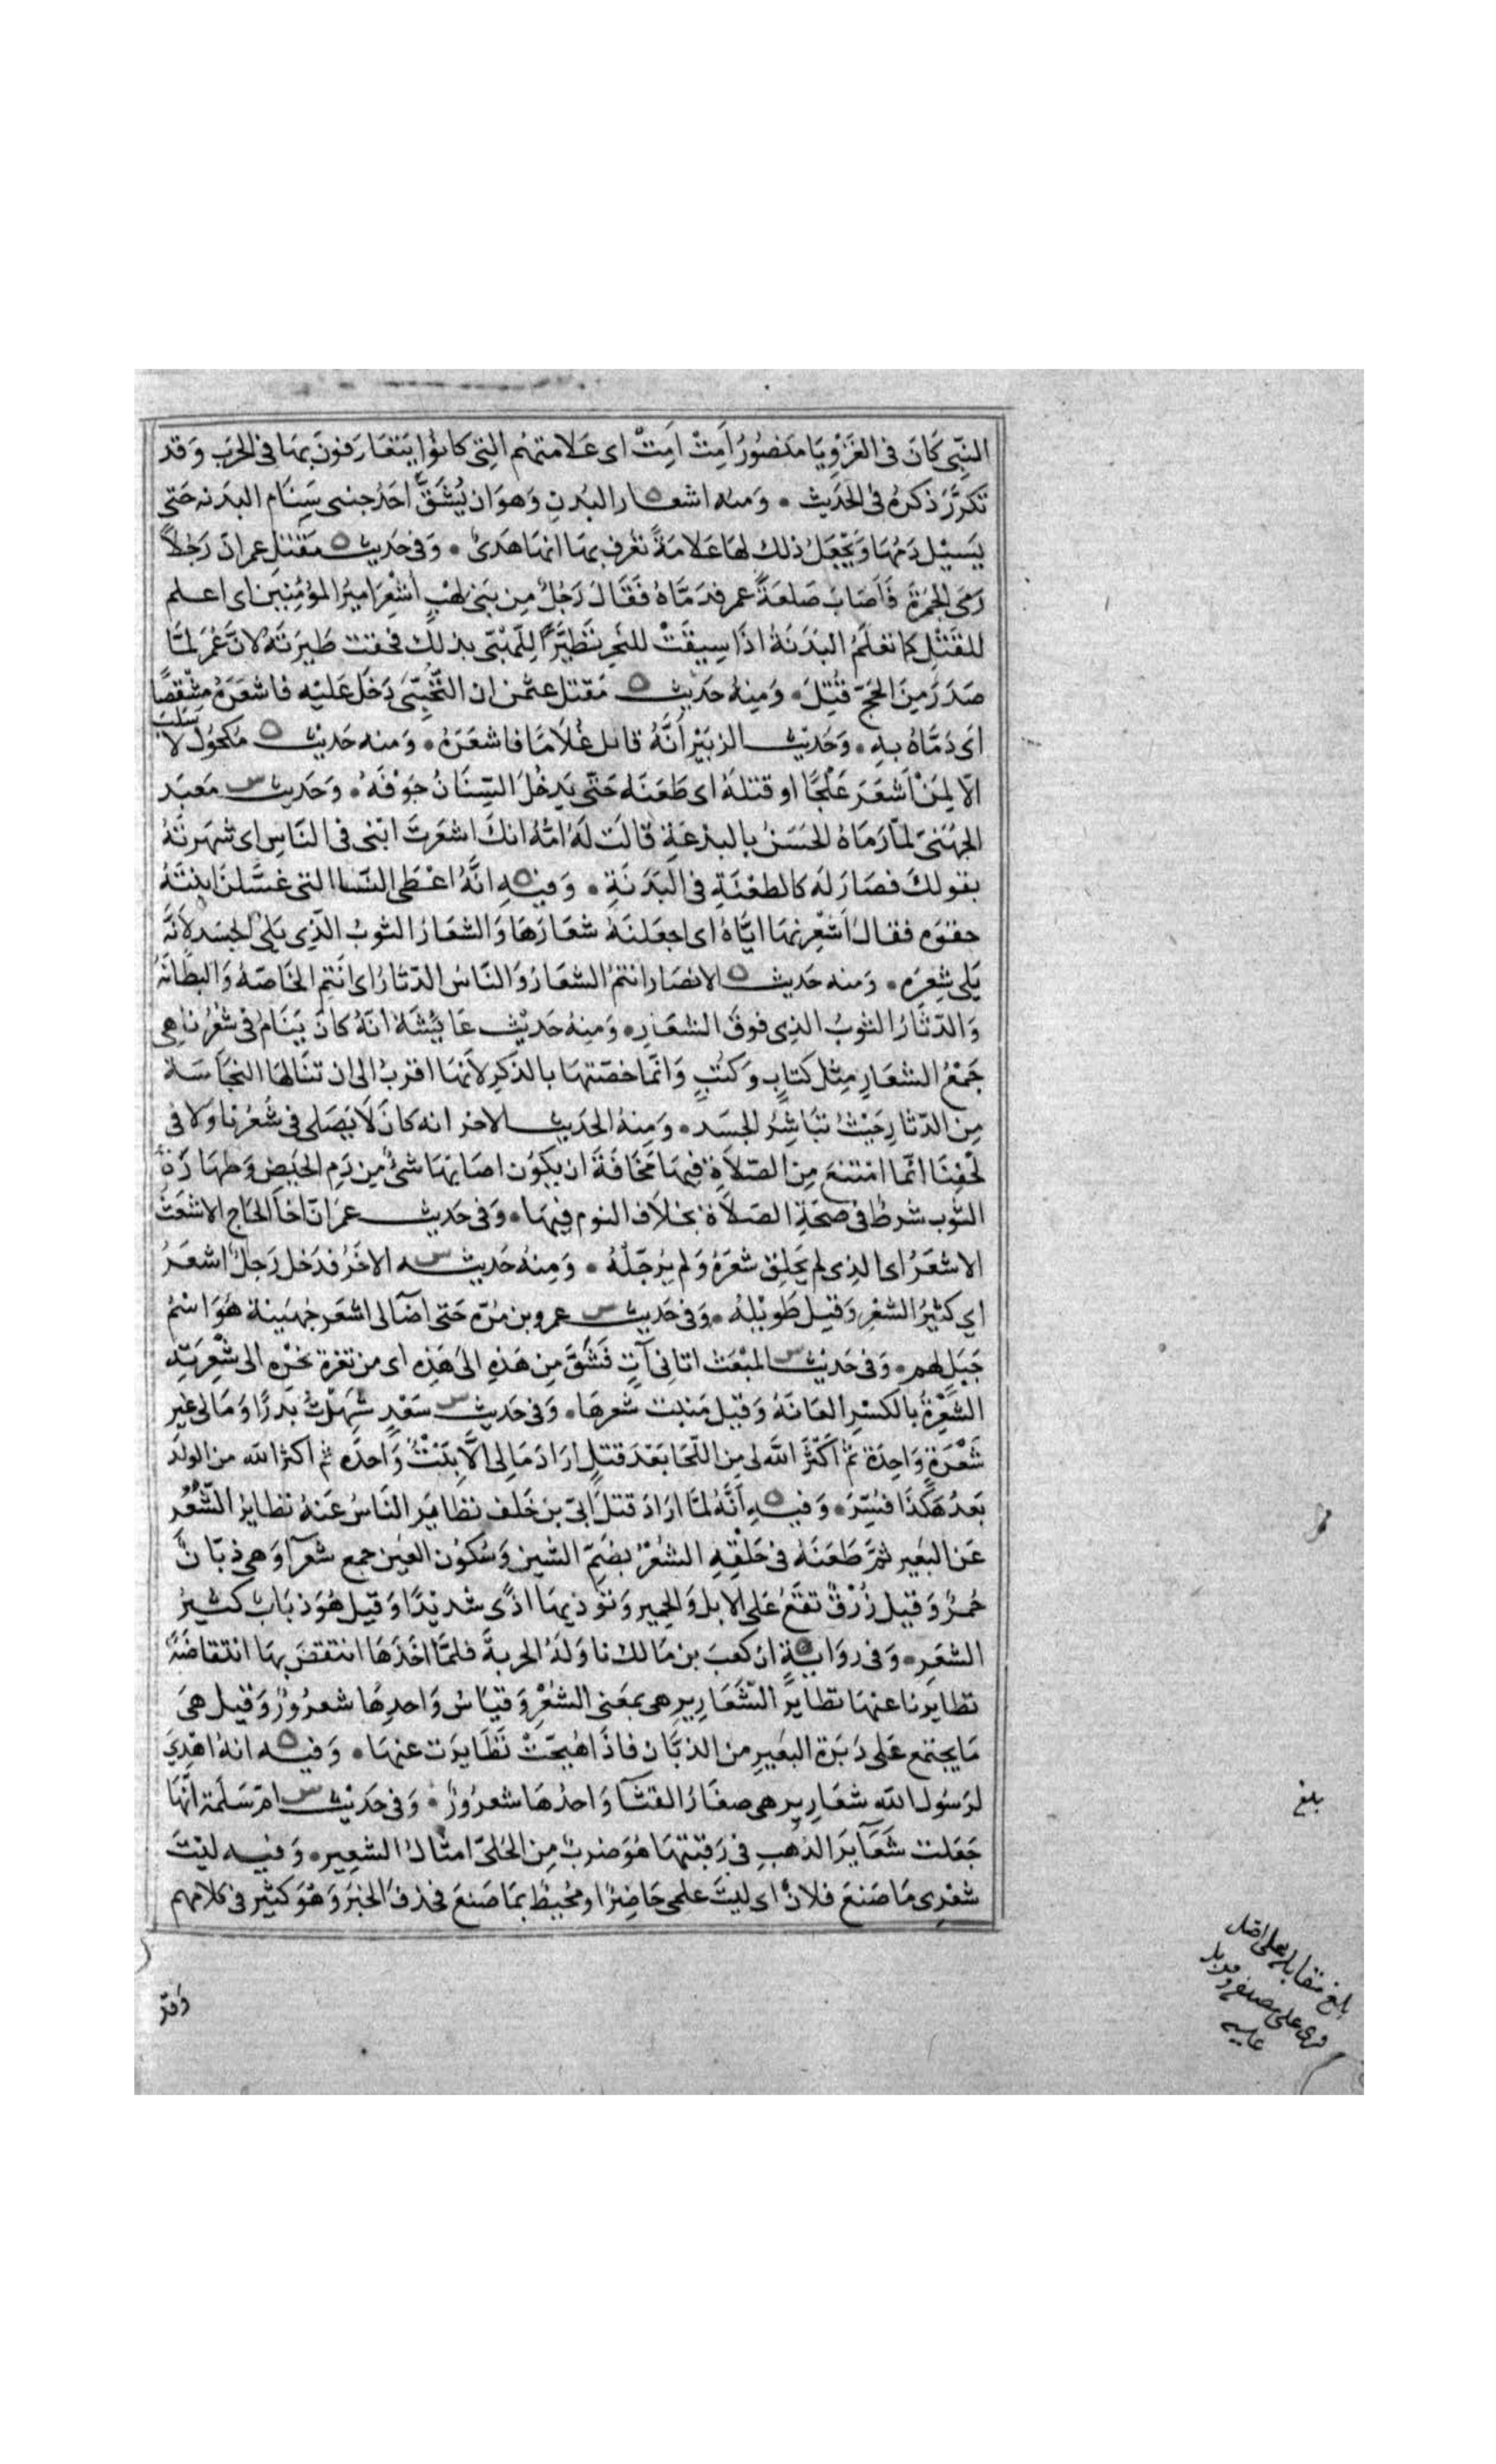 النبى كَانَ فى الغَزْوِ يَا مَنصُورُ أَمِتْ أَمِتْ اى عَلامتهُم التِى كانوُا يَتعَارَفونَ بهَا فى الحَرب وَقد
تكرَّرَ ذكرهُ فى الحَدَيث • وَمنه اشعار البُدنِ وَهوَ ان يُشَقَّ احَدُ جنبى سَنَام البدَنه حَتى
يَسيْل دَمُهَا وَيُجْعَلُ ذلك لهَا عَلامَةً تعُرف بهَا انهَا هَدىٌ • وَفى حَديث مَقتَل عمر ان رَجُلاً
رَمَى الجمْرَة فَاَصَابَ صَلعَةَ عمر فدَمَّاهُ فَقَالَ رَجُلٌ مِن بَنى لهْبٍ اُشْعِرَ اميرُ المؤمِنِين اى اعلم
للقَتْلِ كما تعْلَمُ البَدَنَةُ اذَا سِيقَتْ للنَحرِ تَطيَّرَ اللِّهْبىّ بذلك فحقت طَيَرته لانَّ عُمَر لمَّا
صَدَرَ مِنَ الحَجّ قُتِلَ • وَمِنهُ حَدَيث مَقتل عثمٰن ان التُّجيْبىَّ دَخَل عَليْه فاشعَرَهُ مِشْقَصًا
اَى دَمَّاهُ بهِ • وَحَديث الزبَيْر اَنَّهُ قاتل غُلاَمًا فاشعَرَهُ • وَمنه حَديْث مَكحُول لاَ سَلَبَ
الاّ لِمَنْ اَشعَرَ عَلْجًا او قتلهُ اى طَعَنَهُ حَتّى يَدخُلَ السِّنَانُ جَوْفَهُ • وَحَديث مَعبَد
الجهَنىّ لمَّا رَمَاهُ الحَسَنُ بِالبدْعَةِ قالَت لَهُ امّهُ انكَ اشعَرتَ ابْنى فى النَّاسِ اى شهَرتهُ
بقولكَ فصَارَ لَه كالطعْنَةِ فى البَدَنَةِ • وَفيهِ انَّهُ اعْطَى النسَا التى غسَّلنَ ابنتَهُ
حقوَه فقالَ اَشْعِرنهَا ايَّاهُ اى اجعَلنَهُ شعَارَهَا وَالشعَارُ الثوبُ الَّذِى يَلى الجسَد لاَنَّه
يَلى شعرَه • وَمنه حَديث الانصَار انتمُ الشعَارُ وَالنَّاسُ الدّثارُ اى انَتم الخَاصّة وَالبطَانَة
وَالدّثَارُ الثوبُ الذِى فوقَ الشعَارِ • وَمِنهُ حَديْث عَايشَة انّهُ كانَ يَنَامُ فى شعُرنا هِى
جَمْعُ الشعَارِ مِثل كتَابٍ وَكتُبٍ وَانمَّا خصّتهَا بالذكر لاَنهَا اقربُ الى ان تنَالهَا النجَاسَة
مِنَ الدّثارِ حَيْثُ تبَاشِرُ الجسَد • وَمِنهُ الحَديث الاخر انه كانَ لاَ يُصَلى فى شعُرنا وَلا فى
لحُفِنَا انمَّا امْتَنعَ مِنَ الصّلاَةِ فِيهَا مَخَافَةَ ان يَكوُن اصَابهَا شىٌ مِن دَمِ الحَيض وَطهَارَةُ
الثوب شرطٌ فى صحّةِ الصّلاَة بخلاَف النوم فِيهَا • وَفى حَديث عمَر انّ اخَا الحَاج الاشعَث
الاشعَرُ اى الذِى لم يَحلِق شعَرهُ وَلم يُرجّلهُ • وَمِنهُ حَديثه الاخَرُ فدَخل رَجلٌ اشعَرُ
اي كثيرُ الشعرِ وَقيل طَوِيْلهُ • وَفى حَديث عمرو بن مُرّه حَتى اضَا لى اشعَر جُهَينة هُوَ اسْمُ
جَبَل لهم • وَفى حَديث المبْعَث اتانِى آتٍ فَشَقَّ مِن هَذِهِ الىَ هَذِه اى من ثغرة نحَرْه الى شِعْرَتِه
الشِعْرَةُ بالكسْرِ العَانَةُ وَقيل مَنبت شعَرهَا • وَفى حَديث سَعْدٍ شهِدْتُ بَدرًا وَمَا لى غير
شَعْرَةٍ وَاحِدَة ثمّ اَكثَرَ اللهُ لى مِن اللّحَا بَعْدَ قيلَ ارَادَ مَا لى الاَّ بِنْتٌ وَاحدَه ثم اكثرَ الله من الولَد
بَعدُ هَكَذا فسُّرَ • وَفيهِ اَنَّهُ لمَّا ارَادَ قتلَ ابىّ بن خَلَف تطايَر النَّاسُ عَنهُ تطايرُ الشُّعْر
عَن البَعير ثمّ طَعَنَهُ فى حَلْقهِ الشعْرُ بضَمّ الشين وَسُكوُن العَيْن جمع شعرآ وَهى ذبّانٌ
حُمرٌ وَقيل زُرْقٌ تقَعُ عَلى الابل وَالحمير وَتؤذيهَا اذًى شديْدًا وَقيل هُوَ ذبَابٌ كثيرُ
الشعَرِ • وَفى روَايةٍ ان كعبَ بن مَالك ناوَلَهُ الحربَةَ فلمَّا اخَذَهَا انتقضَ بهَا انتقاضَةً
تطايرنا عنهَا تطايرَ الشَعَارِيرِ هى بمعَنى الشعْرِ وَقيَاسُ وَاحدِهَا شعرُورٌ وَقيل هىَ
مَا يجتمع عَلى دَبَرَة البَعيرِ من الذبَّان فاذَا هيُجّتْ تَطَايرَت عنهَا • وَفيه انهُ اهْدِيَ
لرَسُولِ اللهِ شعَارِير هى صغَارُ القثآ وَاحدُهَا شعرُورٌ • وَفى حَديْث امّ سَلَمَة انَّهَا
جَعَلت شعَآيرَ الذهَبِ فى رَقبَتهَا هُوَ ضربٌ مِن الحُلىّ امثالُ الشعِير • وَفيه ليْتَ
شعْرِى مَا صَنعَ فلانٌ اى ليتَ علمى حَاضِرٌ او محُيطٌ بمَا صَنعَ فحَذفَ الخبَر وَهْوَ كثير فى كلامهم
بلغ
بلغ مقابلة على اصل
قرى على مصنفه وقوبل
عليه
وقد